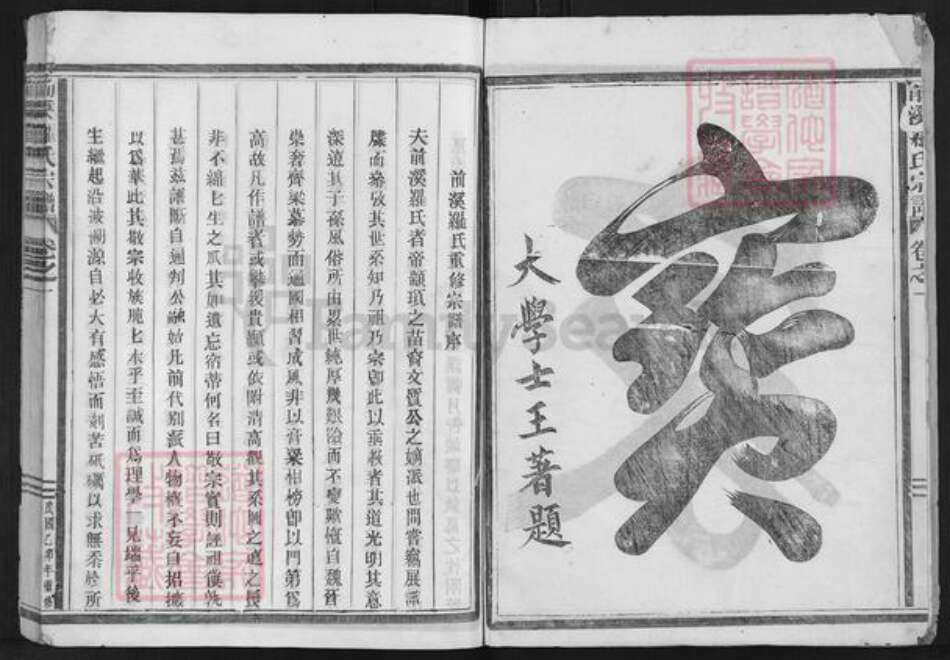 前溪羅氏宗譜 卷之一
大學士王著題
前溪羅氏重修宗譜序
夫前溪羅氏者帝顓頊之苗裔文質公之嫡派也間嘗竊展譜
牒而恭攷其世系知乃祖乃宗卽此以垂教者其道光明其意
深遠其子孫風俗所由累世純厚幾經 而不變歟慨自魏晉
崇奢齊梁慕勢而通國相習成風非以膏粱相榜卽以門第爲
高故凡作譜者或攀援貴顯或依附清高觀其系圖之 之授
非不綿綿生之瓜其如遺忘宿蒂何名曰敬宗實則誣祖僕
甚焉茲譜斷自通判公融始凡前代別派人物槪不妄自招攬
以爲華此其敬宗收族 本乎至誠而爲理學一見端乎後
生繼起沿波溯源自必大有感悟而刻苦砥礪以求無忝於所
羅氏宗譜 卷之一
民國乙 年重修
FamilySearch